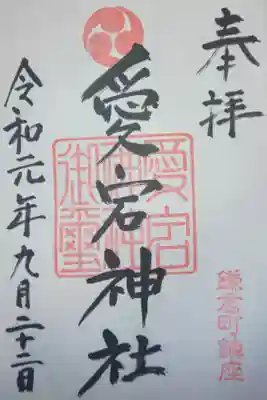 奉拝
愛宕神社
令和元年九月二十二日
愛宕
神社
御璽
鎌倉町鎮座